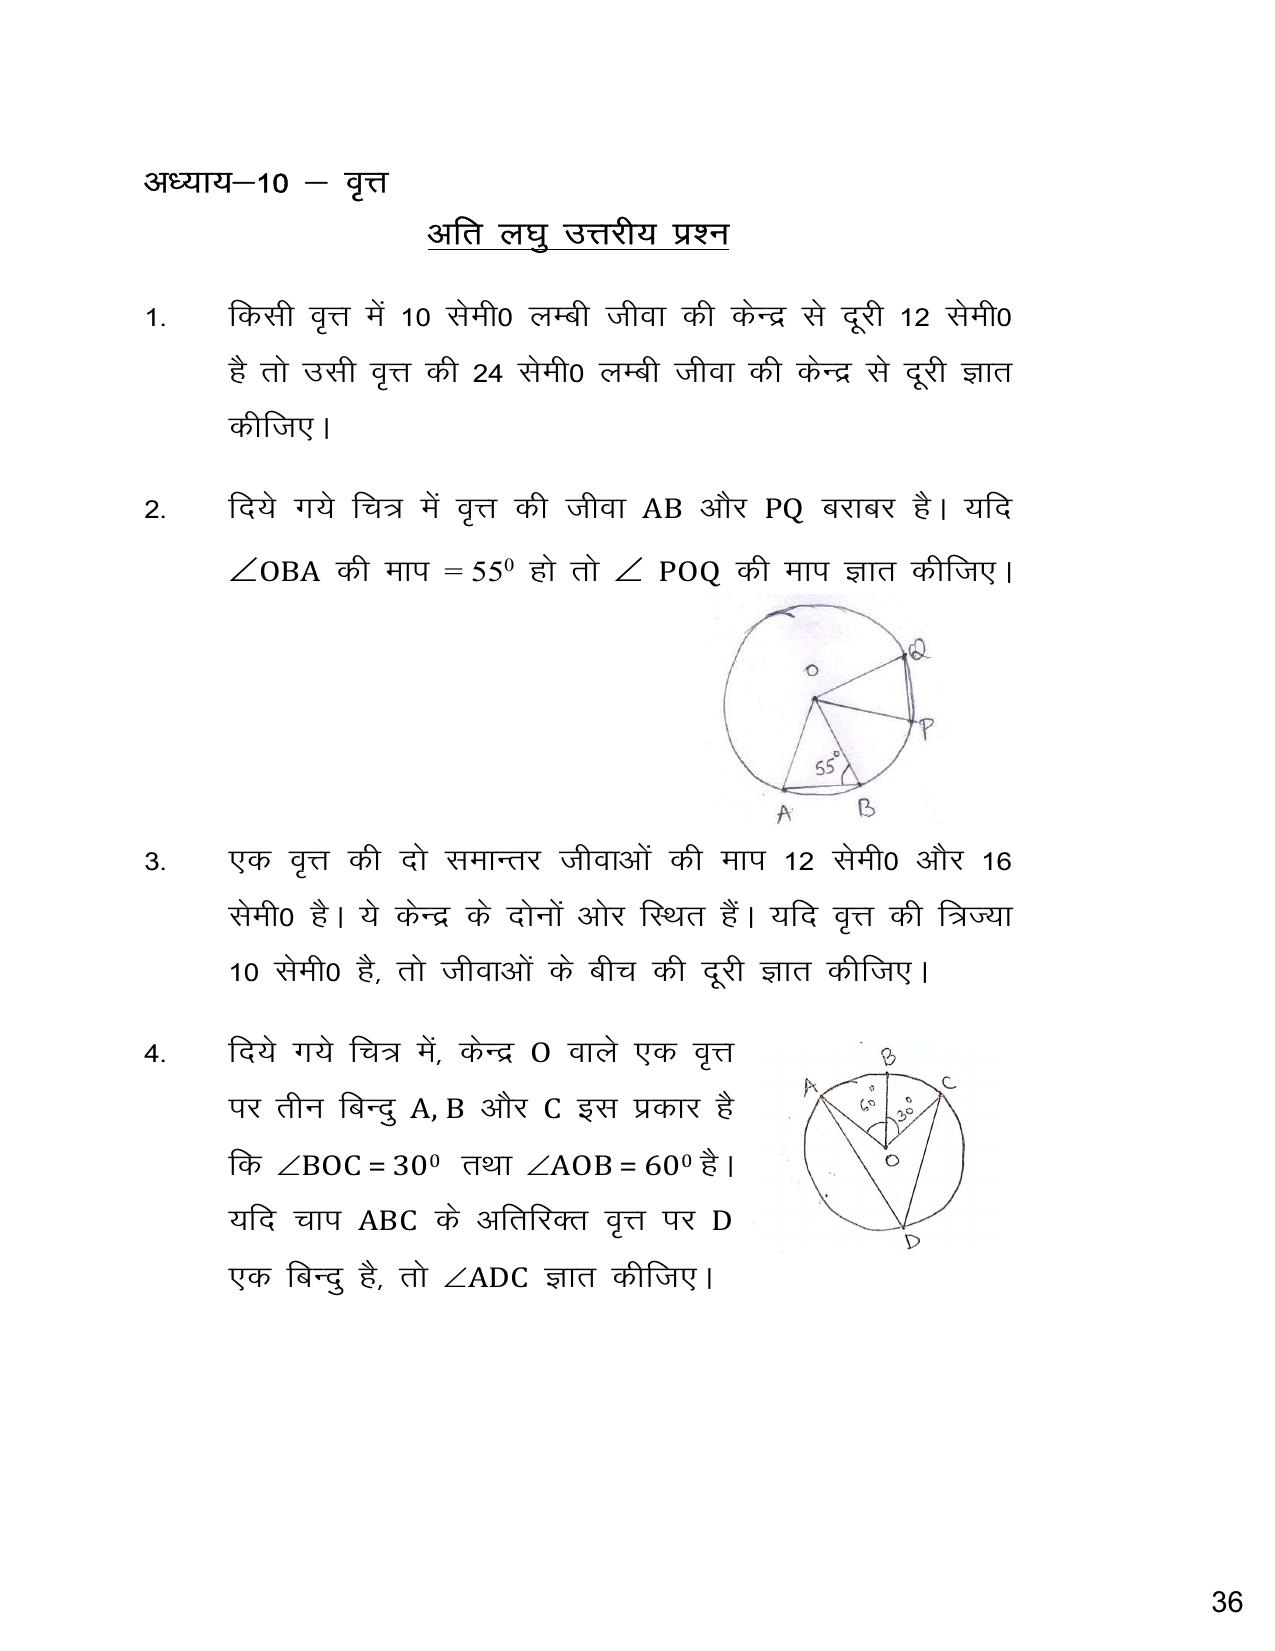 अध्याय–10 – वृत्त
अति लघु उत्तरीय प्रश्न
1. किसी वृत्त में 10 सेमी0 लम्बी जीवा की केन्द्र से दूरी 12 सेमी0
है तो उसी वृत्त की 24 सेमी0 लम्बी जीवा की केन्द्र से दूरी ज्ञात
कीजिए।
2. दिये गये चित्र में वृत्त की जीवा AB और PQ बराबर है। यदि
∠OBA की माप = 55⁰ हो तो ∠ POQ की माप ज्ञात कीजिए।
Q
O
P
55°
A B
3. एक वृत्त की दो समान्तर जीवाओं की माप 12 सेमी0 और 16
सेमी0 है। ये केन्द्र के दोनों ओर स्थित हैं। यदि वृत्त की त्रिज्या
10 सेमी0 है, तो जीवाओं के बीच की दूरी ज्ञात कीजिए।
4. दिये गये चित्र में, केन्द्र O वाले एक वृत्त
पर तीन बिन्दु A, B और C इस प्रकार है
कि ∠BOC = 30⁰ तथा ∠AOB = 60⁰ है।
यदि चाप ABC के अतिरिक्त वृत्त पर D
एक बिन्दु है, तो ∠ADC ज्ञात कीजिए।
B
A C
60° 30°
O
D
36